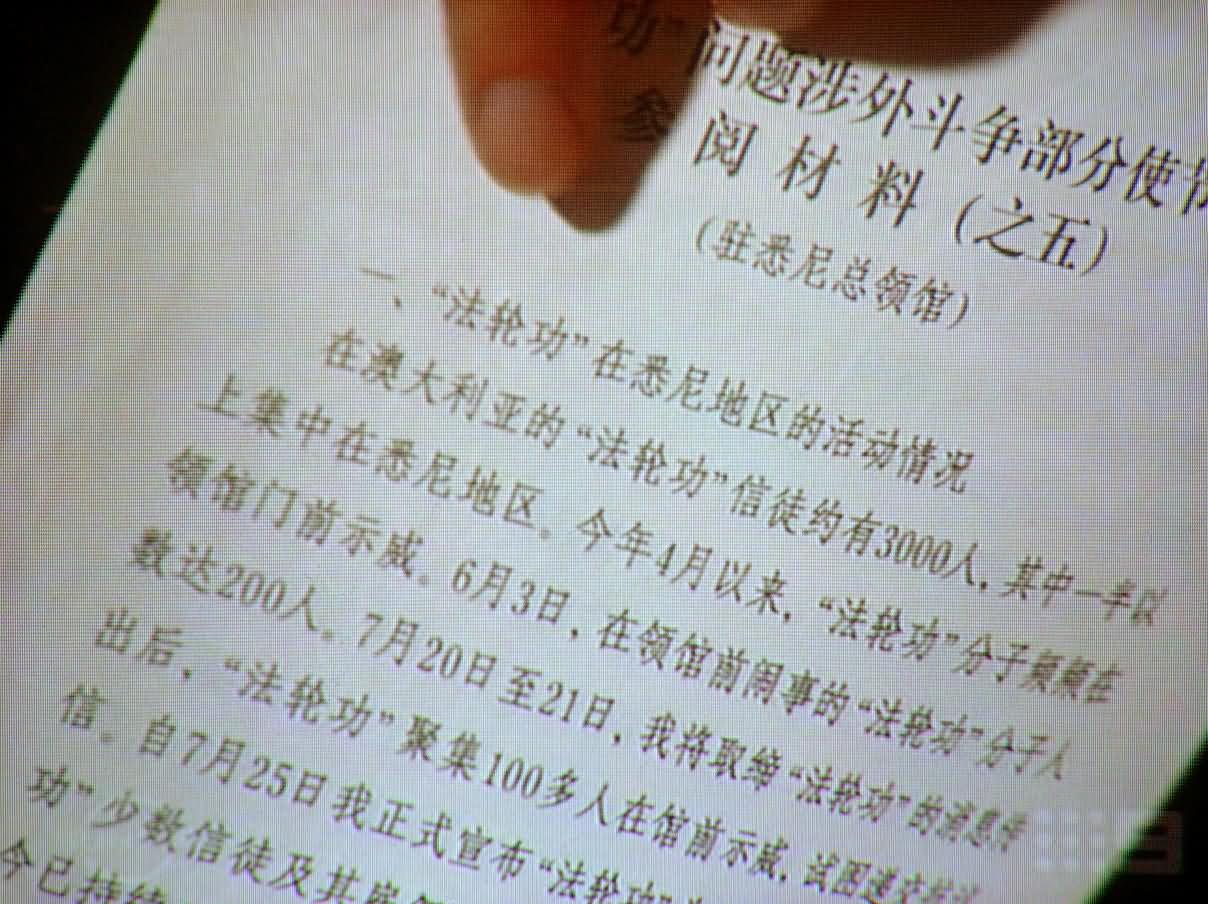 功”问题涉外斗争部分使节
参阅材料（之五）
（驻悉尼总领馆）
一、“法轮功”在悉尼地区的活动情况
在澳大利亚的“法轮功”信徒约有3000人，其中一半以
上集中在悉尼地区。今年4月以来，“法轮功”分子频频在
领馆门前示威。6月3日，在领馆前闹事的“法轮功”分子人
数达200人。7月20日至21日，我将取缔“法轮功”的消息传
出后，“法轮功”聚集100多人在馆前示威，试图递交抗议
信。自7月25日我正式宣布“法轮功”
功”少数信徒及其
今已持续